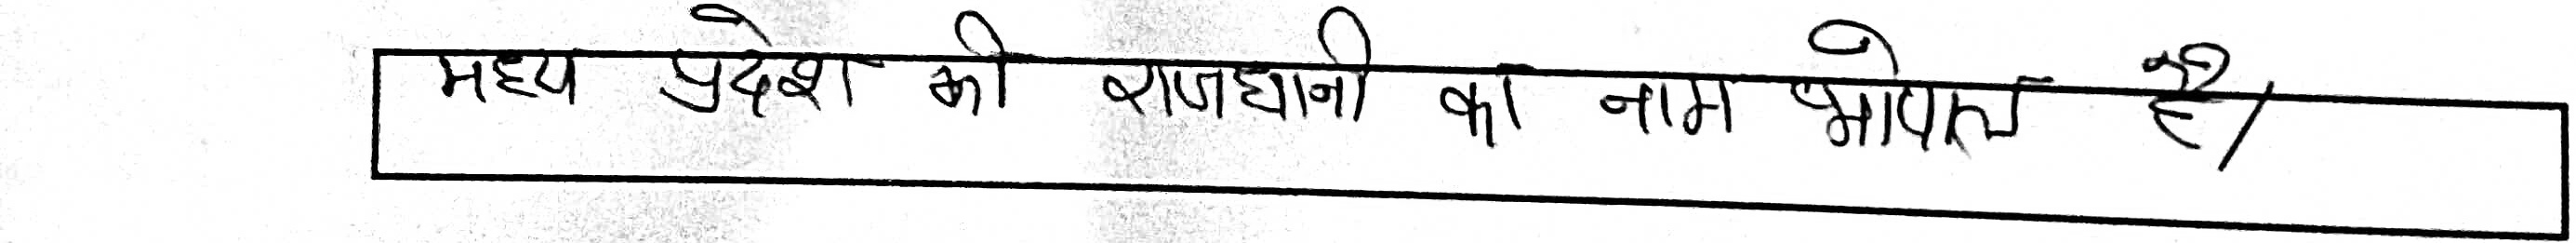 मध्य प्रदेश की राजधानी का नाम भोपाल है।